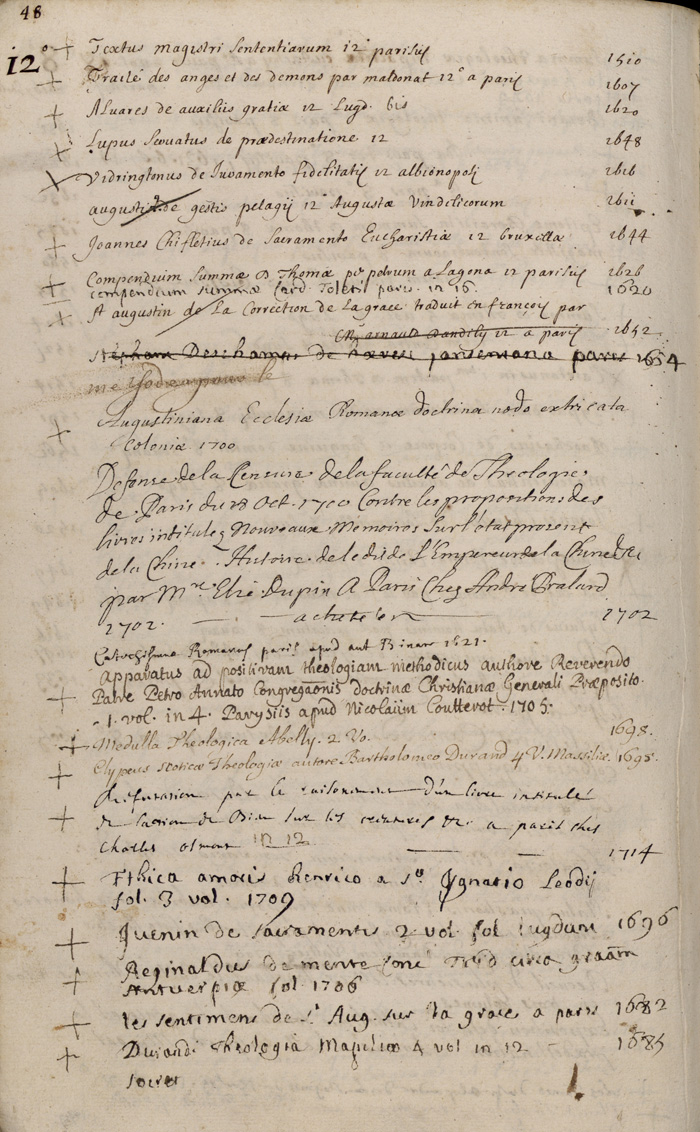 48
12°
Textus magistri sententiarum 12° parisiis 1510
Traité des anges et des demons par maldonat 12° a paris 1607
Aluares de auxiliis gratiæ 12 Lugd. bis 1620
Lupus Seruatus de prædestinatione 12 1648
Vidringtonus de Juramento fidelitatis 12 albionopoli 1616
augustin de gestis pelagij 12 Augustæ Vindelicorum 1611
Joannes Chifletius de Sacramento Eucharistiæ 12 bruxellæ 1644
Compendium Summæ D Thomæ per petrum a Lagona 12 parisiis 1626
compendium summæ Card. Toleti paris. in 16. 1620
St augustin de La Correction de La grace traduit en françois par
Mr arnauld Dandilly 12 a paris 1652
stephani Deschamps de hæresi janseniana paris 1654
Augustiniana Ecclesiæ Romanæ doctrina nodo extricata
Coloniæ 1700
Defense de la Censure de la faculté de Theologie
de Paris du 18 Oct. 1700 Contre les propositions des
livres intitulez Nouveaux Memoires Sur l'etat present
de la Chine. Histoire de l'edit de L'Empereur de la Chine &c
par Mre Elie Dupin A Paris Chez André Pralard
1702. 1702
Catechismus Romanus paris apud 1621.
Apparatus ad positivam theologiam methodicus authore Reverendo
Patre Petro Annato Congregaõnis doctrinæ Christianæ Generali Præposito
1. vol. in 4. Parysiis apud Nicolaüm Coutterot. 1705.
Medulla Theologica Abelly. 2 Vo. 1698.
Clypeus scoticæ Theologiæ autore Bartholomeo Durand 4 V. Massiliæ. 1698.
Refutation par le raisonement d'un livre intitulé
de l'action de Dieu sur les creatures &c. a paris ches
Charles osmont in 12 1714
Ethica amoris Henrico a sto Ignatio Leodij
fol. 3 vol. 1709
Juenin de sacramentis 2 vol fol lugduni 1696
Reginaldus de mente conc Trid circa graãm
Antuerpiæ fol 1706
les sentimens de st Aug. sur la grace a paris 1682
Durandi theologia Massiliæ 4 vol in 12 1685